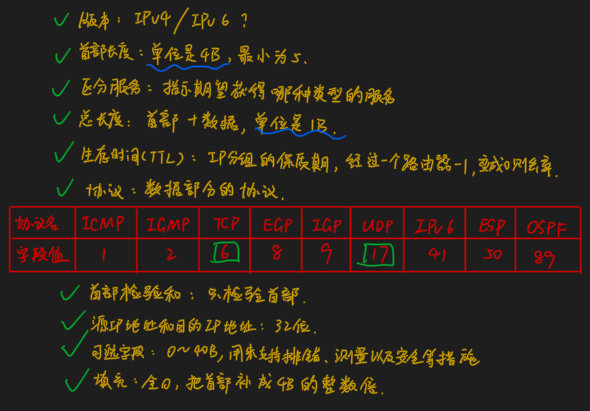 版本：IPv4/IPv6？
首部长度：单位是4B，最小为5.
区分服务：指示期望获得哪种类型的服务
总长度：首部+数据，单位是1B.
生存时间(TTL)：IP分组的保质期，经过一个路由器-1，变成0则丢弃.
协议：数据部分的协议.
协议名 ICMP IGMP TCP EGP IGP UDP IPv6 ESP OSPF
字段值 1 2 6 8 9 17 41 50 89
首部检验和：只检验首部.
源IP地址和目的IP地址：32位.
可选字段：0~40B，用来支持排错、测量以及安全等措施
填充：全0，把首部补成4B的整数倍.